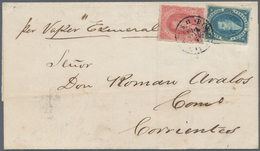 per Vapor "Esmeral
Señor
Don Roman Avalos
Com^o
Corrientes